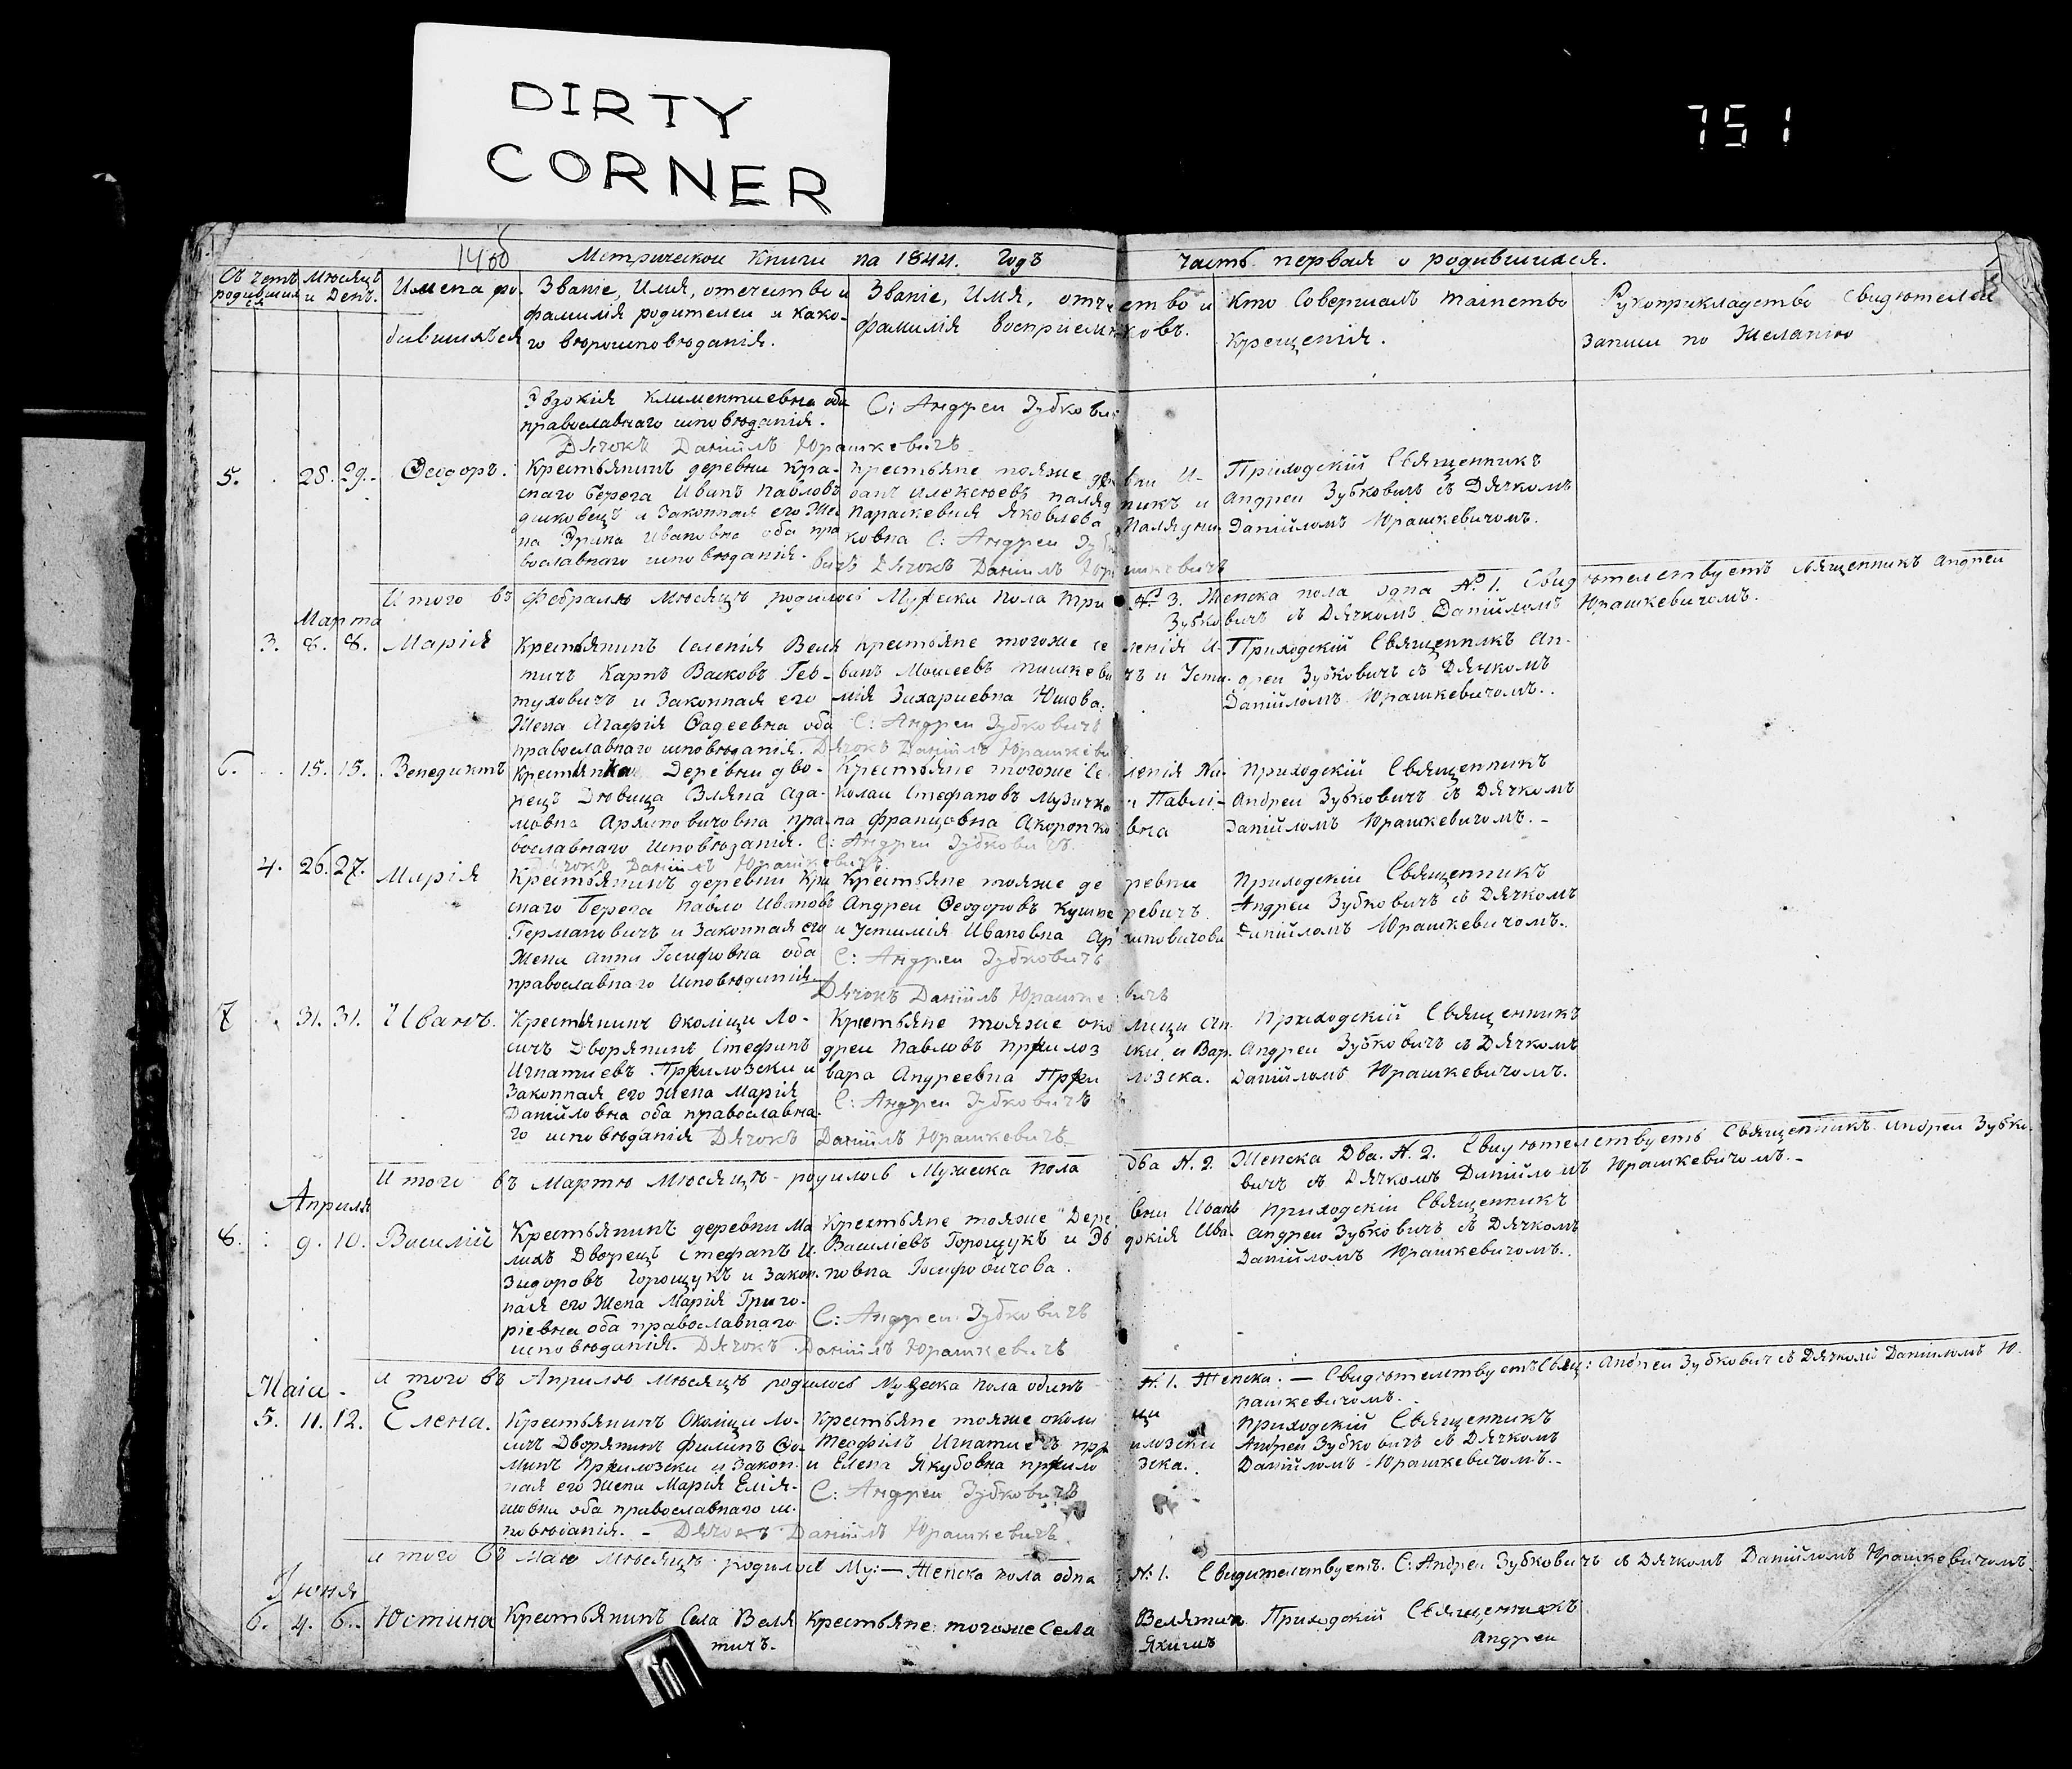 DIRTY
CORNER
751
14об
Метрической Книги на 1844. Годъ часть первая о родившихся.
Съ четъ родившихся
Месяцъ и День.
Имена родившихъся
Званіе, Имя, отечество и
фамилія родителей и како-
го вероисповеданія.
Званіе, Имя, отчество и
фамилія восприемниковъ.
Кто Совершалъ таинство
Крещенія.
Рукоприкладство свидетелей
записи по Желанію
Климентиевна оба
православнаго исповеданія.
С: Андреи Зубкови
Дячокъ Даніилъ Юрашкевичъ
5. 28. 29. Ѳеодоръ.
Крестьянинъ деревни Кра-
снаго берега Иванъ Павловъ
и Законная его Же-
на Ирина Ивановна оба пра
вославнаго исповеданія.
Крестьяне тояже деревни И-
ванъ Алексеевъ и
Параскевия Яковлева
С: Андреи Зубко
вичъ Дячокъ Даніилъ Юрашкевичъ
Приходскій Священникъ
Андреи Зубковичъ съ Дячкомъ
Даніиломъ Юрашкевичомъ.
Итого въ Феврале Месяце родилось Мужеска пола три №. 3. Женска пола одна №. 1. Свидетельствуетъ священникъ Андреи
Зубковичъ съ Дячкомъ Даніиломъ Юрашкевичомъ.
Марта
3. 8. 8. Марія
Крестьянинъ селенія Веля
тичъ Карпъ Васковъ Гев-
туховичъ и Законная его
Жена Агафія Фадеевна оба
православнаго исповеданія.
Крестьяне тогоже се ленія И-
ванъ Моисеевъ Тишкеви чъ и Усти-
мія Захариевна Юшова.
С: Андреи Зубковичъ
Дячокъ Даніилъ Юрашкеви
Приходскій Священникъ Ан-
дреи Зубковичъ съ Дячкомъ
Даніиломъ Юрашкевичомъ.
6. 15. 15. Венедиктъ
Крестянка Деревни дво-
рецъ Девица Ада-
мовна Архиповичовна пра-
вославнаго Исповеданія.
Крестьяне тогоже Се ленія Ни-
колаи Стефановъ Музычко и Павли-
на Францовна Скоропко вна
С: Андреи Зубковичъ
Дячокъ Даніилъ Юрашкевичъ
Приходскій Священникъ
Андреи Зубковичъ съ Дячкомъ
Даніиломъ Юрашкевичомъ.-
4. 26. 27. Марія
Крестьянинъ деревни Кра
снаго Берега Павло Ивановъ
Германовичъ и Законная его
Жена Анна Иосифовна оба
православнаго Исповеданія
Крестьяне тояже де ревни
Андреи Ѳеодоровъ Кушне ревичъ
и Устимія Ивановна Ар хиповичовна
С: Андреи Зубковичъ
Дячокъ Даніилъ Юрашкевичъ
Приходскій Священникъ
Андреи Зубковичъ съ Дячкомъ
Даніиломъ Юрашкевичомъ.
7 31. 31. Иванъ.
Крестянинъ Околіци Ло-
сичъ Дворянинъ Стефанъ
Игнатиевъ и
Законная его Жена Марія
Даніиловна оба православна-
го исповеданія
Крестьяне тояже око лици Ан-
дреи Павловъ ски и Вар-
вара Андреевна
С: Андреи Зубковичъ
Дячокъ Даніилъ Юрашкевичъ.
Приходскій Священникъ
Андреи Зубковичъ съ Дячкомъ
Даніиломъ Юрашкевичомъ.
Итого въ Марте Месяце родилось Мужеска пола два №. 2. Женска Два. №. 2. Свидетельствуетъ Священникъ Андреи Зубко-
вичъ съ Дячкомъ Даніиломъ Юрашкевичомъ.-
Апреля
8. 9. 10. Василій
Крестьянинъ деревни Ма
лихъ Дворецъ Стефанъ И-
зидоровъ Горощукъ и Закон-
ная его Жена Марія Григо-
ріевна оба православнаго
исповеданія.
Крестьяне тояже Дере вни Иванъ
Василіевъ Горощукъ и Эв докія Ива-
новна Иосифовичова.
С: Андреи Зубковичъ
Дячокъ Даніилъ Юрашкевичъ
Приходскій Священникъ
Андреи Зубковичъ съ Дячкомъ
Даніиломъ Юрашкевичомъ.
Итого въ Апреле Месяце родилось Мужеска пола одинъ №. 1. Женска. — Свидетельствуетъ Свящ: Андреи Зубковичъ съ Дячкомъ Даніиломъ Ю-
рашкевичомъ.
Маія
5. 11. 12. Елена.
Крестьянинъ Околіци Ло-
сичъ Дворянинъ Филипъ Ѳо-
минъ и Закон-
ная его Жена Марія
оба православнаго ис-
поведанія.
Крестьяне тояже околи ци
Теофилъ Игнатиевъ
и Елена Якубовна
С: Андреи Зубковичъ
Дячокъ Даніилъ Юрашкевичъ
Приходскій Священникъ
Андреи Зубковичъ съ Дячкомъ
Даніиломъ Юрашкевичомъ.-
Итого въ Маю Месяце родилось Му: — Женска пола одна №. 1. Свидетельствуетъ. С: Андреи Зубковичъ съ Дячкомъ Даніиломъ Юрашкевичомъ.
Іюня
6. 4. 6. Юстина
Крестьянинъ Села Веля
тичъ.
Крестьяне тогоже Села Велятичъ
Якимъ
Приходскій Священникъ
Андреи